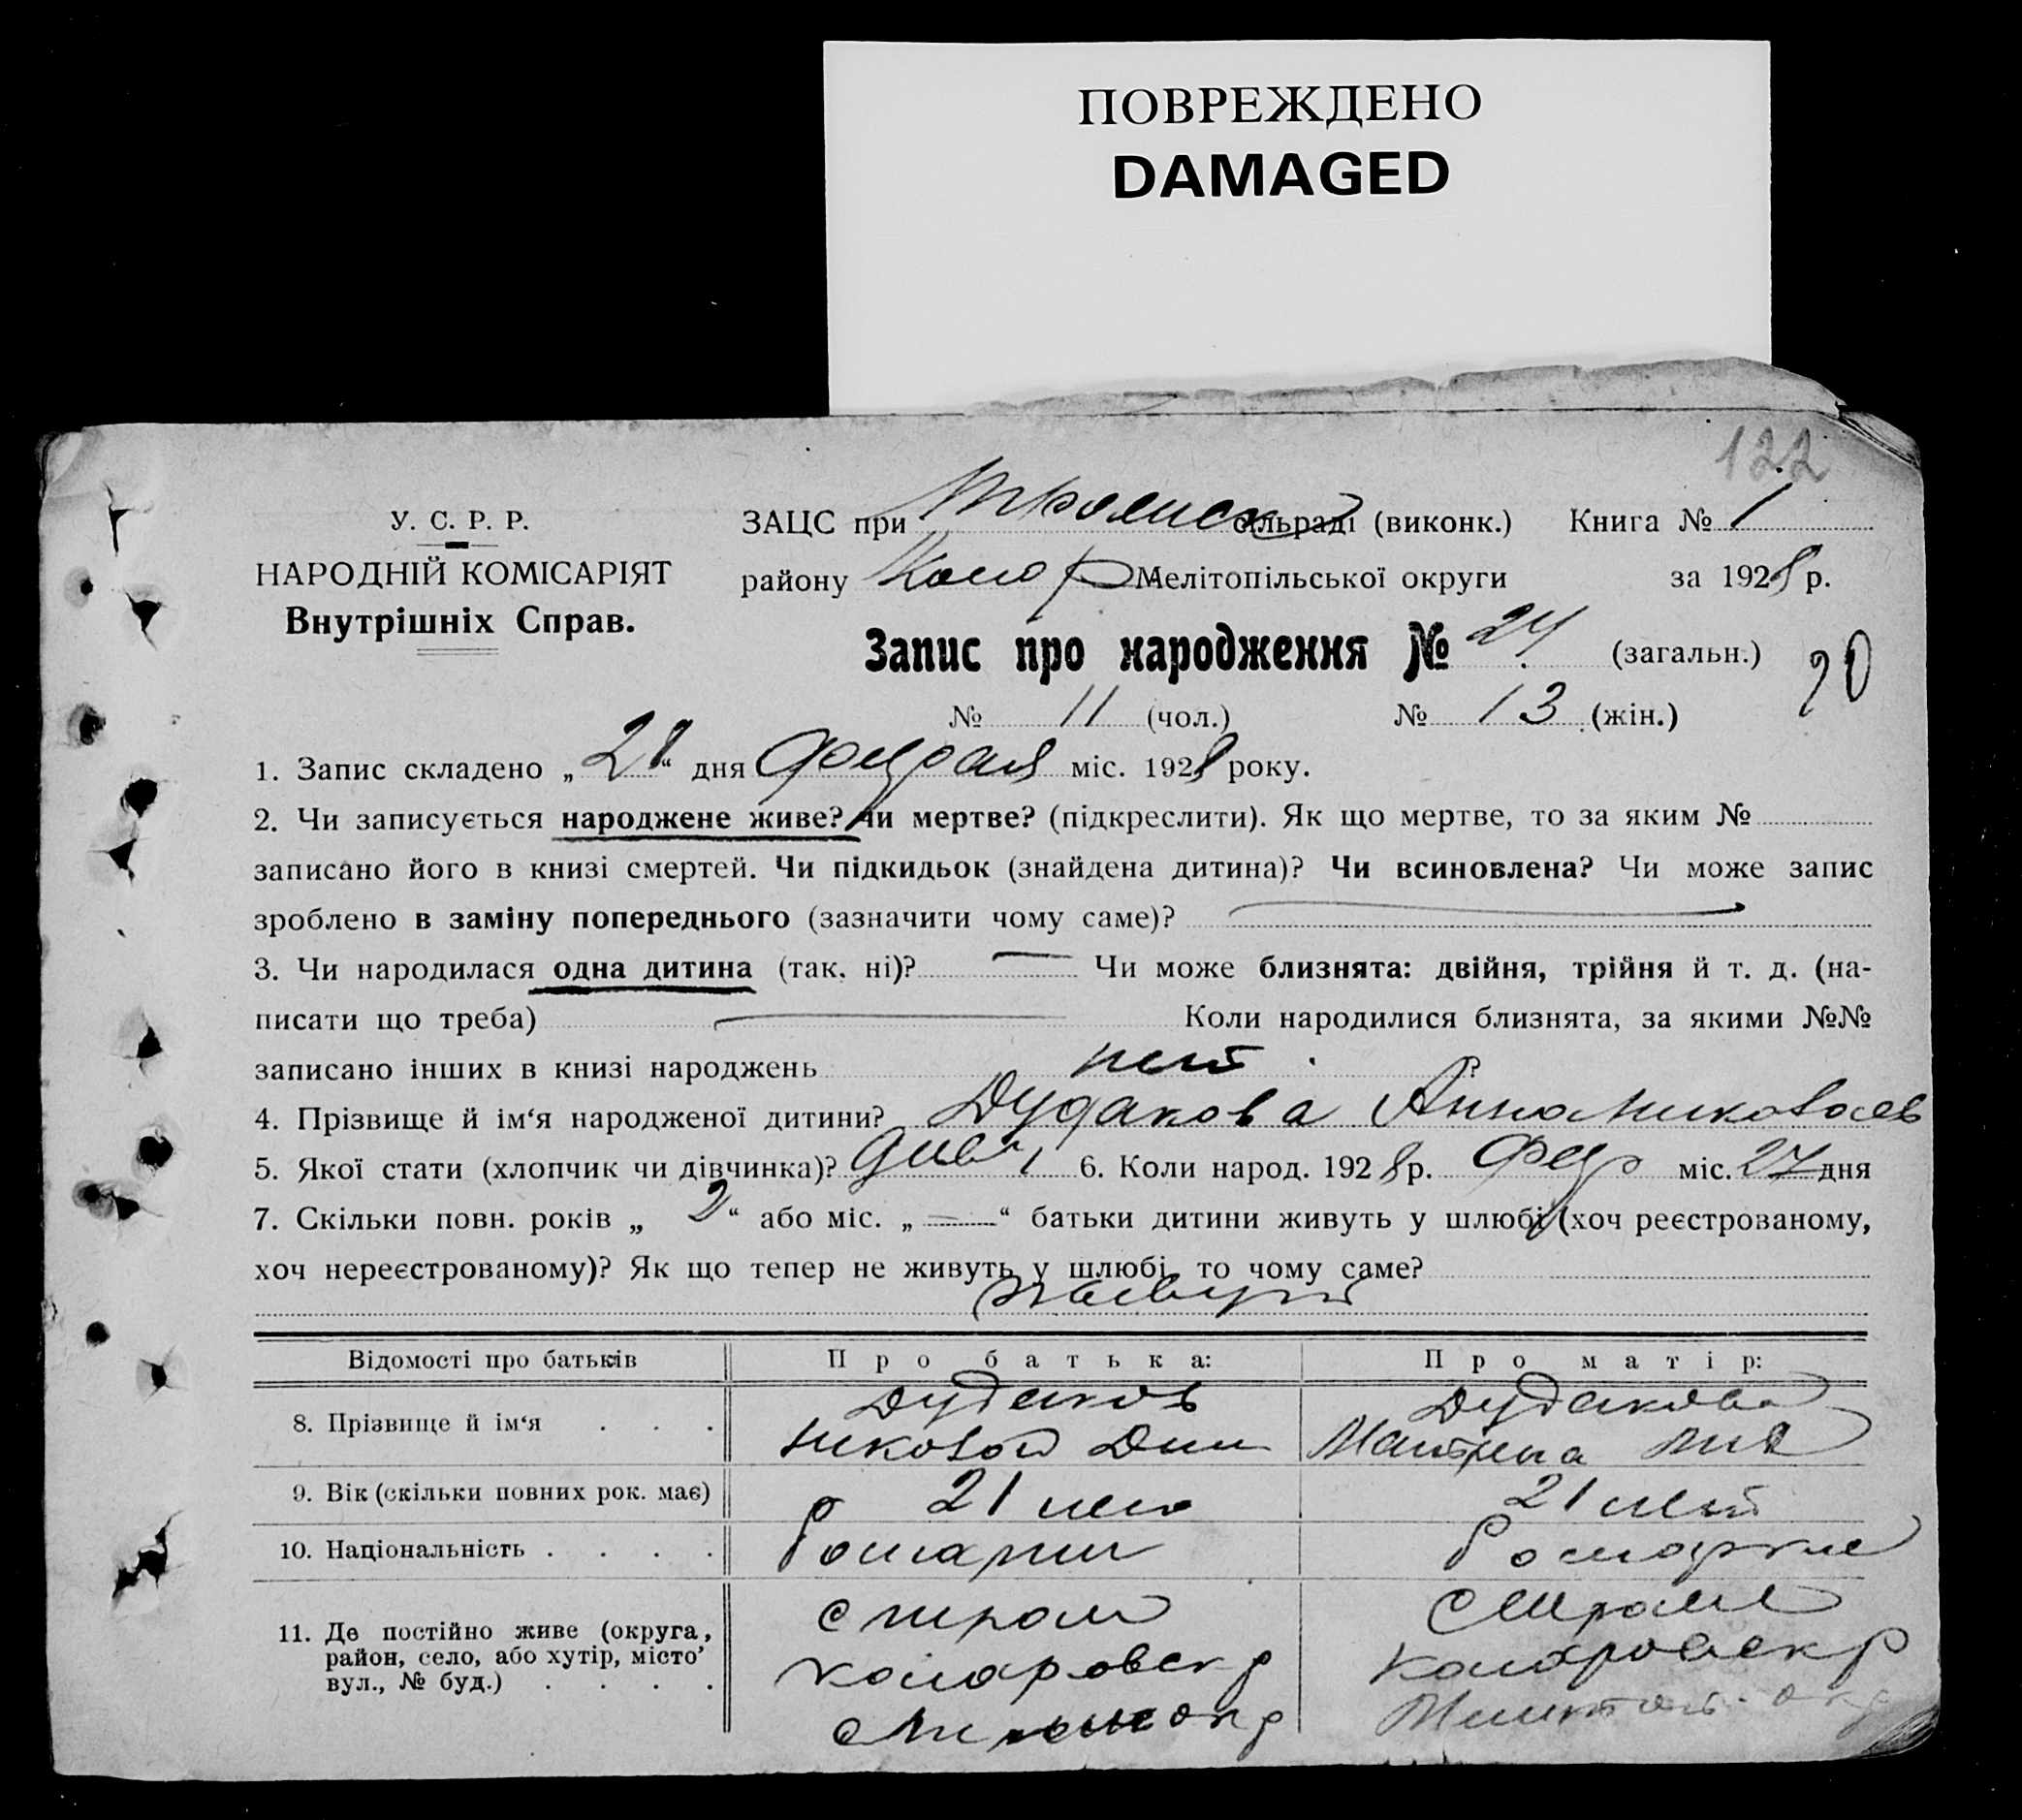 ПОВРЕЖДЕНО
DAMAGED
122
У. С. Р. Р.
НАРОДНІЙ КОМІСАРІЯТ
Внутрішніх Справ.
ЗАЦС при сільраді (виконк.) Книга № 1
району Колар Мелітопільської округи за 1928 р.
Запис про народження № 24 (загальн.)
20
№ 11 (чол.) № 13 (жін.)
1. Запис складено „28“ дня февраля міс. 1928 року.
2. Чи записується народжене живе? Чи мертве? (підкреслити). Як що мертве, то за яким №
записано його в книзі смертей. Чи підкидьок (знайдена дитина)? Чи всиновлена? Чи може запис
зроблено в заміну попереднього (зазначити чому саме)?
3. Чи народилася одна дитина (так, ні)? — Чи може близнята: двійня, трійня й т. д. (на-
писати що треба) Коли народилися близнята, за якими №№
записано інших в книзі народжень нет ?
4. Прізвище й ім‘я народженої дитини? Дудакова Анна Николаев
5. Якої стати (хлопчик чи дівчинка)? 6. Коли народ. 1928 р. Февр міс. 27 дня
7. Скільки повн. років „2“ або міс. „—“ батьки дитини живуть у шлюбі (хоч реєстрованому,
хоч нереєстрованому)? Як що тепер не живуть у шлюбі, то чому саме?
живут
Відомості про батьків Про батька: Про матір:
8. Прізвище й ім‘я . . . Дудаков Дудакова
Николай Дми Матрена
9. Вік (скільки повних рок. має) 21 лет 21 лет
10. Національність . . . .
11. Де постійно живе (округа,
район, село, або хутір, місто’
вул., № буд.) . . . .
с Трояни с Трояни
Коларовск р Коларовск р
окр Мелитоп. окр